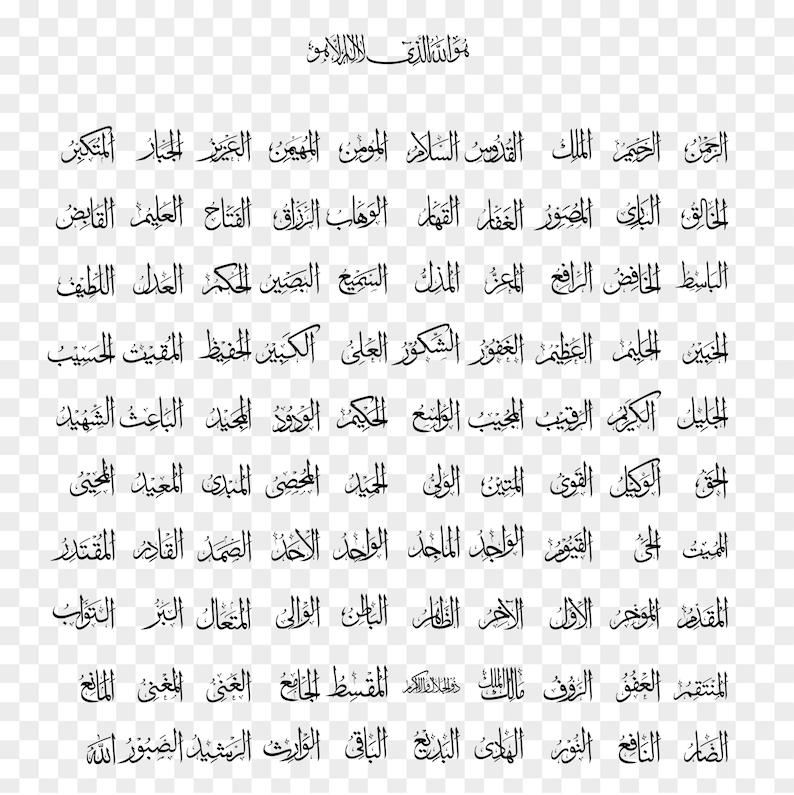 هُوَ اللهُ الَّذِى لَا اِلٰهَ اِلَّا هُوَ
الرحمن الرحيم الملك القدوس السلام المؤمن المهيمن العزيز الجبار المتكبر
الخالق البارئ المصور الغفار القهار الوهاب الرزاق الفتاح العليم القابض
الباسط الخافض الرافع المعز المذل السميع البصير الحكم العدل اللطيف
الخبير الحليم العظيم الغفور الشكور العلى الكبير الحفيظ المقيت الحسيب
الجليل الكريم الرقيب المجيب الواسع الحكيم الودود المجيد الباعث الشهيد
الحق الوكيل القوى المتين الولى الحميد المحصى المبدى المعيد المحيى
المميت الحى القيوم الواجد الماجد الواحد الاحد الصمد القادر المقتدر
المقدم المؤخر الاول الآخر الظاهر الباطن الوالى المتعال البر التواب
المنتقم العفو الرؤف مالك الملك ذو الجلال والاكرام المقسط الجامع الغنى المغنى المانع
الضار النافع النور الهادى البديع الباقى الوارث الرشيد الصبور الله